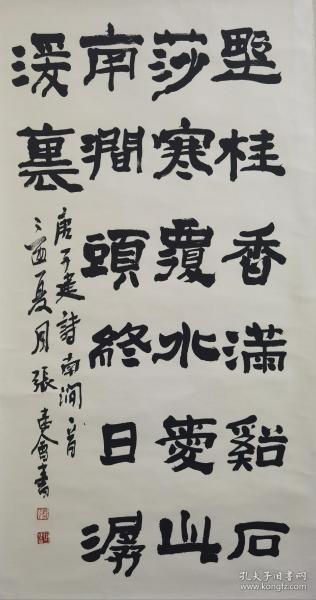 野桂香滿谿石
莎寒覆水愛此
南澗頭終日潺
湲裏
唐王建詩南澗一首
乙酉夏月張書
孔夫子旧书网